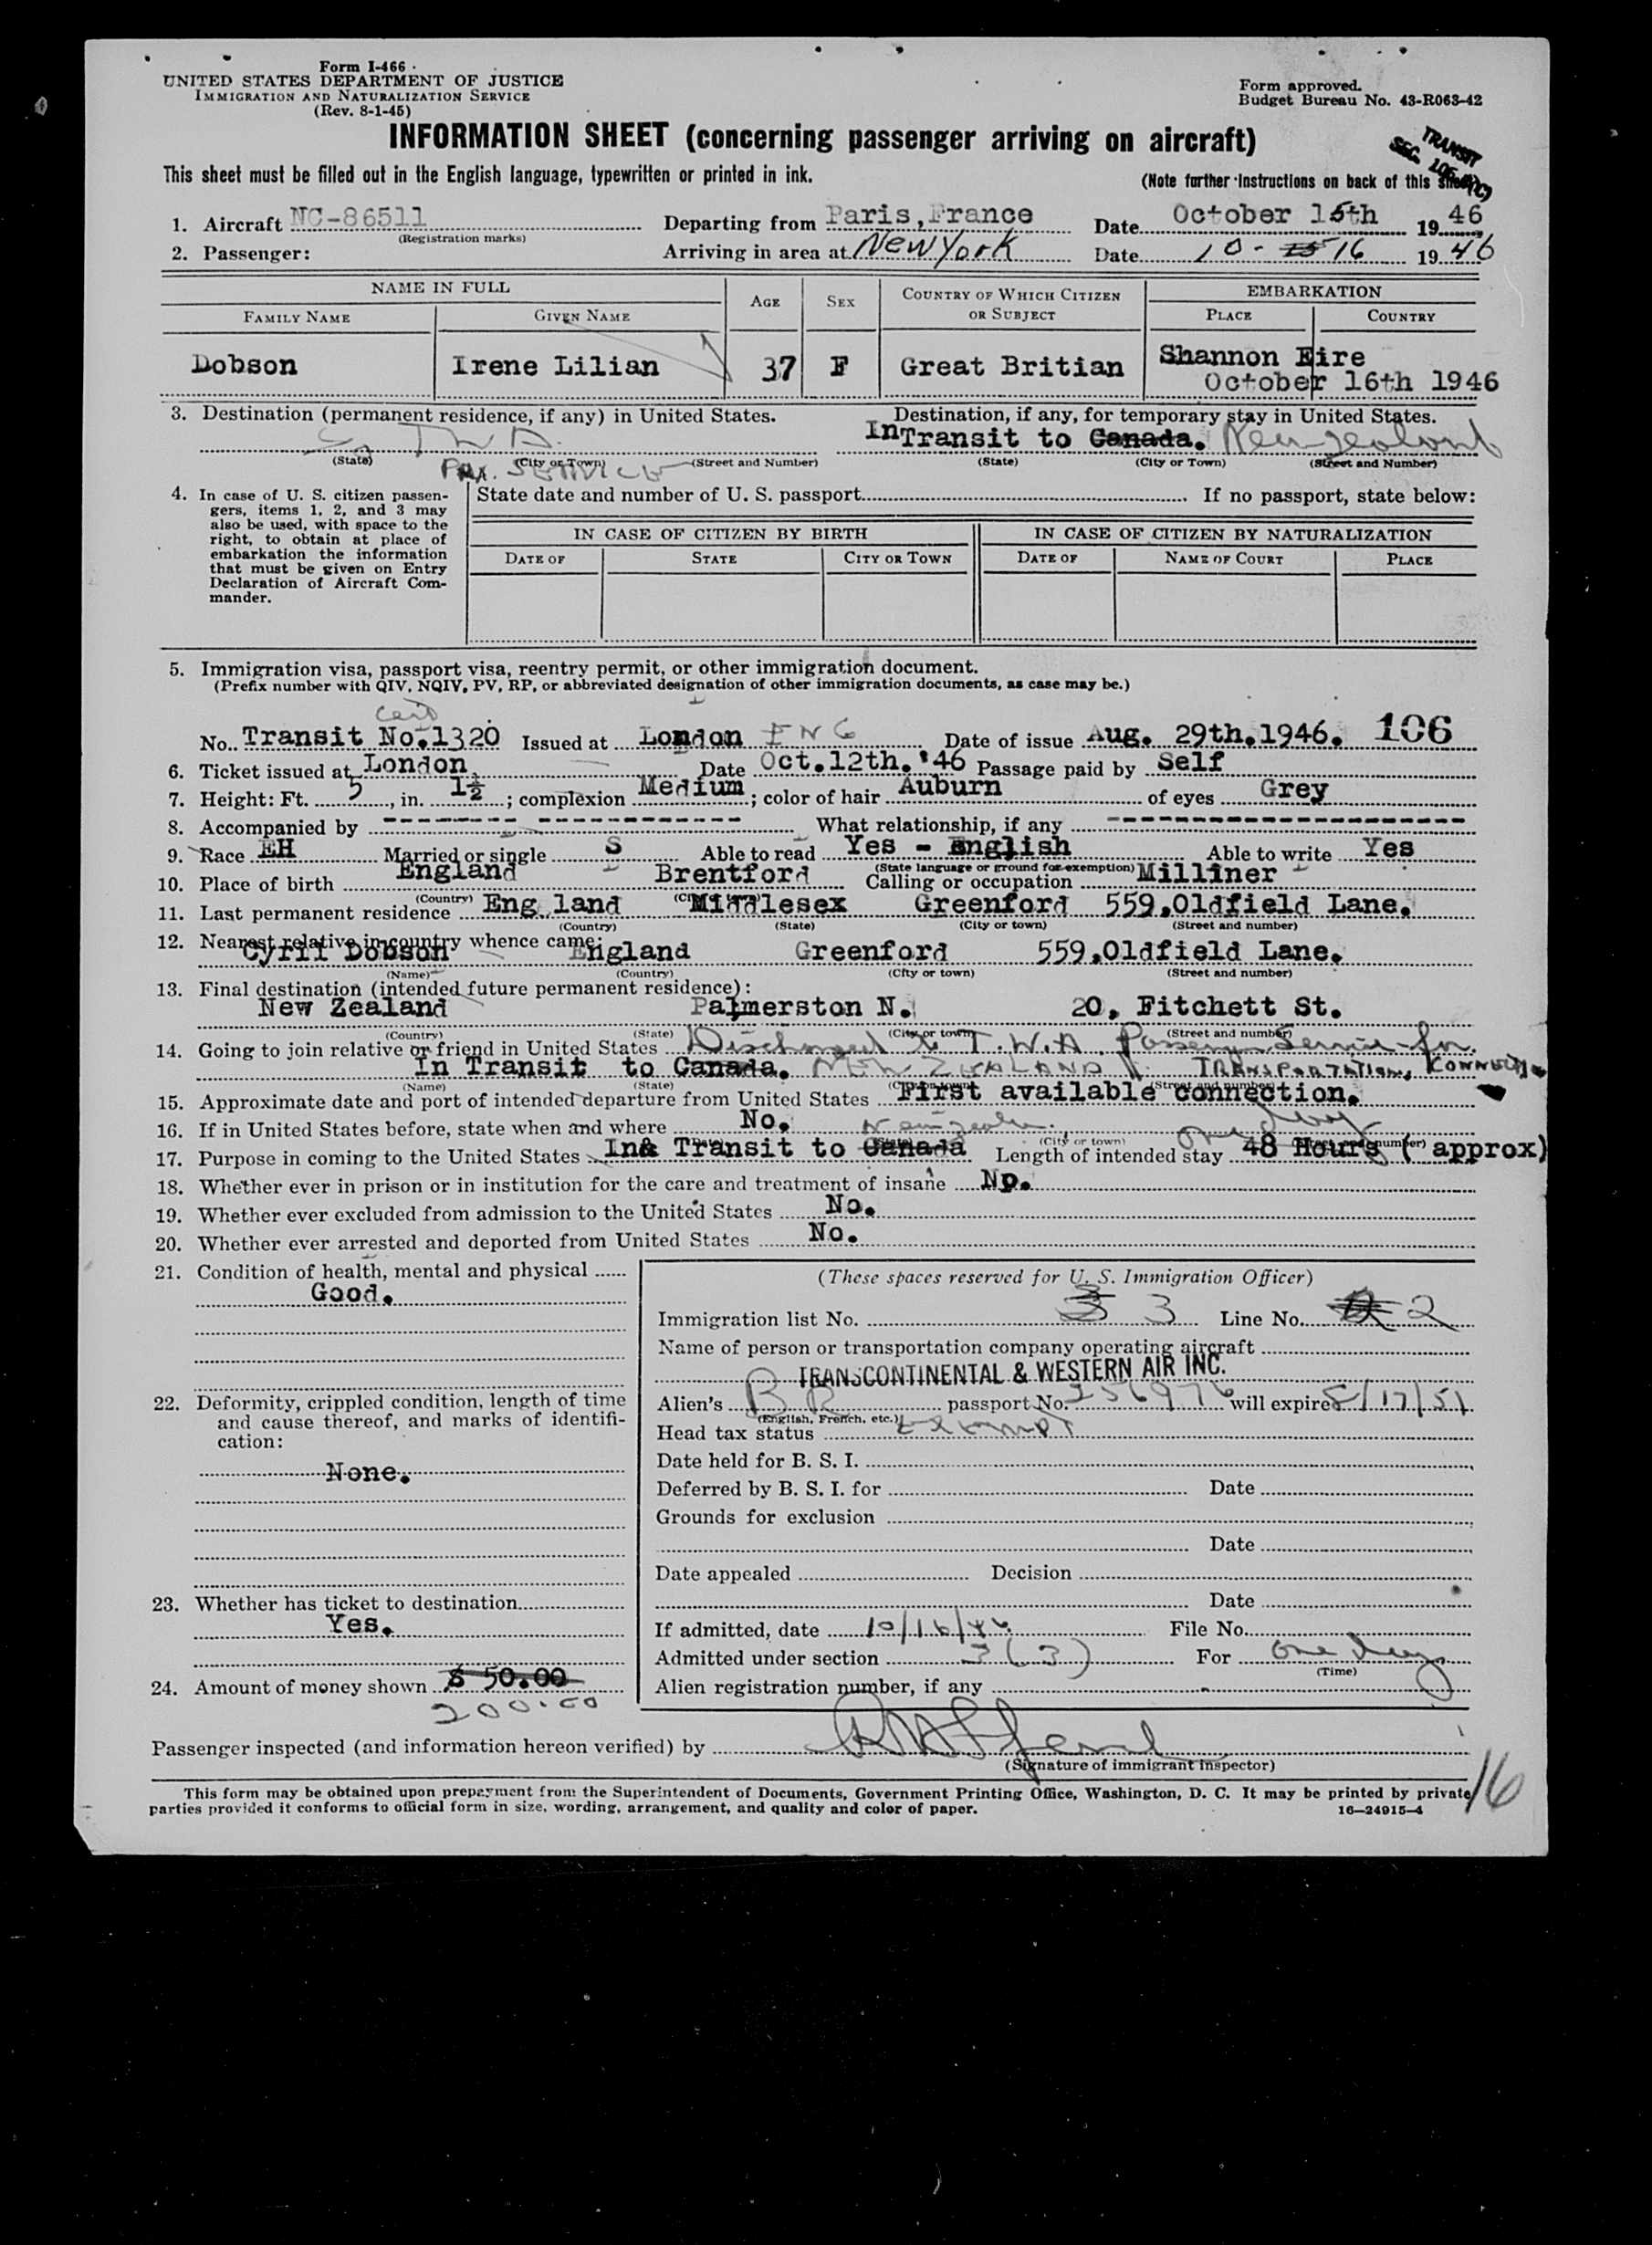 Form I-466
UNITED STATES DEPARTMENT OF JUSTICE
IMMIGRATION AND NATURALIZATION SERVICE
(Rev. 8-1-45)
Form approved.
Budget Bureau No. 43-R063-42
INFORMATION SHEET (concerning passenger arriving on aircraft)
TRANSIT
SEC.
This sheet must be filled out in the English language, typewritten or printed in ink.
(Note further instructions on back of this sheet)
1. Aircraft NC-86511 Departing from Paris, France Date October 15th 1946
(Registration marks)
2. Passenger: Arriving in area at New York Date 10-16 1946
NAME IN FULL AGE SEX COUNTRY OF WHICH CITIZEN OR SUBJECT EMBARKATION
FAMILY NAME GIVEN NAME PLACE COUNTRY
Dobson Irene Lilian 37 F Great Britian Shannon Eire
October 16th 1946
3. Destination (permanent residence, if any) in United States. Destination, if any, for temporary stay in United States.
TWA. In Transit to Canada. New Zealand
(State) (City or Town) (Street and Number) (State) (City or Town) (Street and Number)
PAX. SERVICE
4. In case of U. S. citizen passengers, items 1, 2, and 3 may also be used, with space to the right, to obtain at place of embarkation the information that must be given on Entry Declaration of Aircraft Commander.
State date and number of U. S. passport If no passport, state below:
IN CASE OF CITIZEN BY BIRTH IN CASE OF CITIZEN BY NATURALIZATION
DATE OF STATE CITY OR TOWN DATE OF NAME OF COURT PLACE
5. Immigration visa, passport visa, reentry permit, or other immigration document.
(Prefix number with QIV, NQIV, PV, RP, or abbreviated designation of other immigration documents, as case may be.)
No. Transit Cert No. 1320 Issued at London ENG Date of issue Aug. 29th. 1946. 106
6. Ticket issued at London Date Oct. 12th. '46 Passage paid by Self
7. Height: Ft. 5, in. 1½; complexion Medium; color of hair Auburn of eyes Grey
8. Accompanied by -------- What relationship, if any --------
9. Race EH Married or single S Able to read Yes - English Able to write Yes
(State language or ground for exemption)
10. Place of birth England Brentford Calling or occupation Milliner
(Country)
11. Last permanent residence Eng land Middlesex Greenford 559, Oldfield Lane.
(Country) (State) (City or town) (Street and number)
12. Nearest relative in country whence came:
Cyril Dobson England Greenford 559, Oldfield Lane.
(Name) (Country) (City or town) (Street and number)
13. Final destination (intended future permanent residence):
New Zealand Palmerston N. 20, Fitchett St.
(Country) (State) (City or town) (Street and number)
14. Going to join relative or friend in United States Discharged to T.W.A. Passenger Service for
In Transit to Canada. NEW ZEALAND TRANSPORTATION,
(Name) (State) (City or town) (Street and number)
15. Approximate date and port of intended departure from United States First available connection.
16. If in United States before, state when and where No.
(City or town) (Street and number)
17. Purpose in coming to the United States In& Transit to Canada New Zealand Length of intended stay 48 Hours (approx) one day
18. Whether ever in prison or in institution for the care and treatment of insane No.
19. Whether ever excluded from admission to the United States No.
20. Whether ever arrested and deported from United States No.
21. Condition of health, mental and physical
Good.
22. Deformity, crippled condition, length of time and cause thereof, and marks of identification:
None.
23. Whether has ticket to destination
Yes.
24. Amount of money shown $ 50.00
200.00
(These spaces reserved for U. S. Immigration Officer)
Immigration list No. 3 Line No. 2
Name of person or transportation company operating aircraft
TRANSCONTINENTAL & WESTERN AIR INC.
Alien's BR passport No. 256976 will expire 8/17/51
(English, French, etc.)
Head tax status exempt
Date held for B. S. I.
Deferred by B. S. I. for Date
Grounds for exclusion
Date
Date appealed Decision
Date
If admitted, date 10/16/46 File No.
Admitted under section 3(3) For one day
(Time)
Alien registration number, if any
Passenger inspected (and information hereon verified) by
(Signature of immigrant inspector)
16
This form may be obtained upon prepayment from the Superintendent of Documents, Government Printing Office, Washington, D. C. It may be printed by private
parties provided it conforms to official form in size, wording, arrangement, and quality and color of paper.
16—24915-4